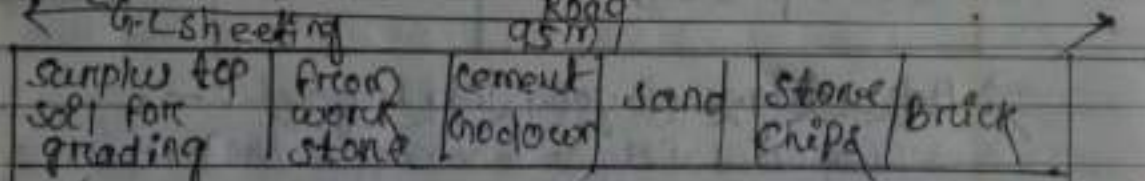 Road
G.L sheeting 95m
surplus top
soil for
grading
from
work
stone
cement
Godown
sand
stone
chips
Brick